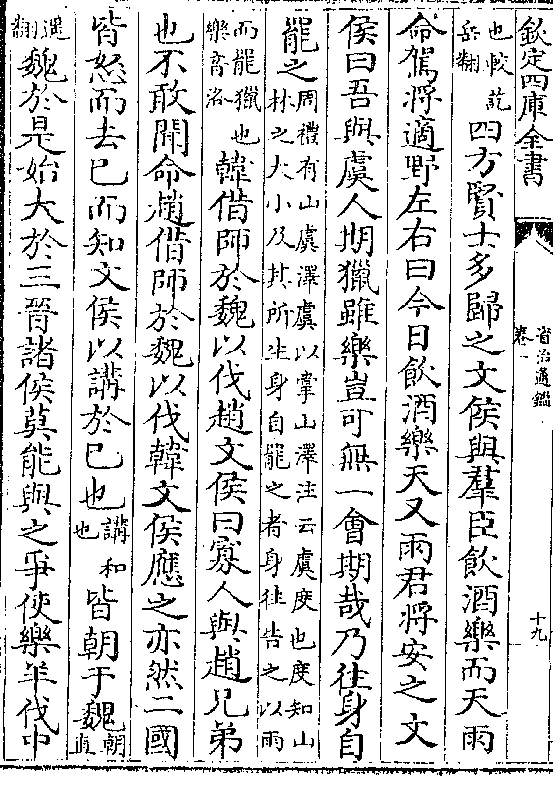 欽定四庫全書
資治通鑑
卷一
十九
也較訖
岳翻
四方賢士多歸之文侯與羣臣飲酒樂而天雨
命駕將適野左右曰今日飲酒樂天又雨君將安之文
侯曰吾與虞人期獵雖樂豈可無一會期哉乃往身自
罷之
周禮有山虞澤虞以掌山澤注云虞度也度知山
林之大小及其所生身自罷之者身往告之以雨
而罷獵也
樂音洛
韓借師於魏以伐趙文侯曰寡人與趙兄弟
也不敢聞命趙借師於魏以伐韓文侯應之亦然二國
皆怒而去已而知文侯以講於已也
講和
也
皆朝于魏
朝
直
遥
翻
魏於是始大於三晉諸侯莫能與之爭使樂羊伐中